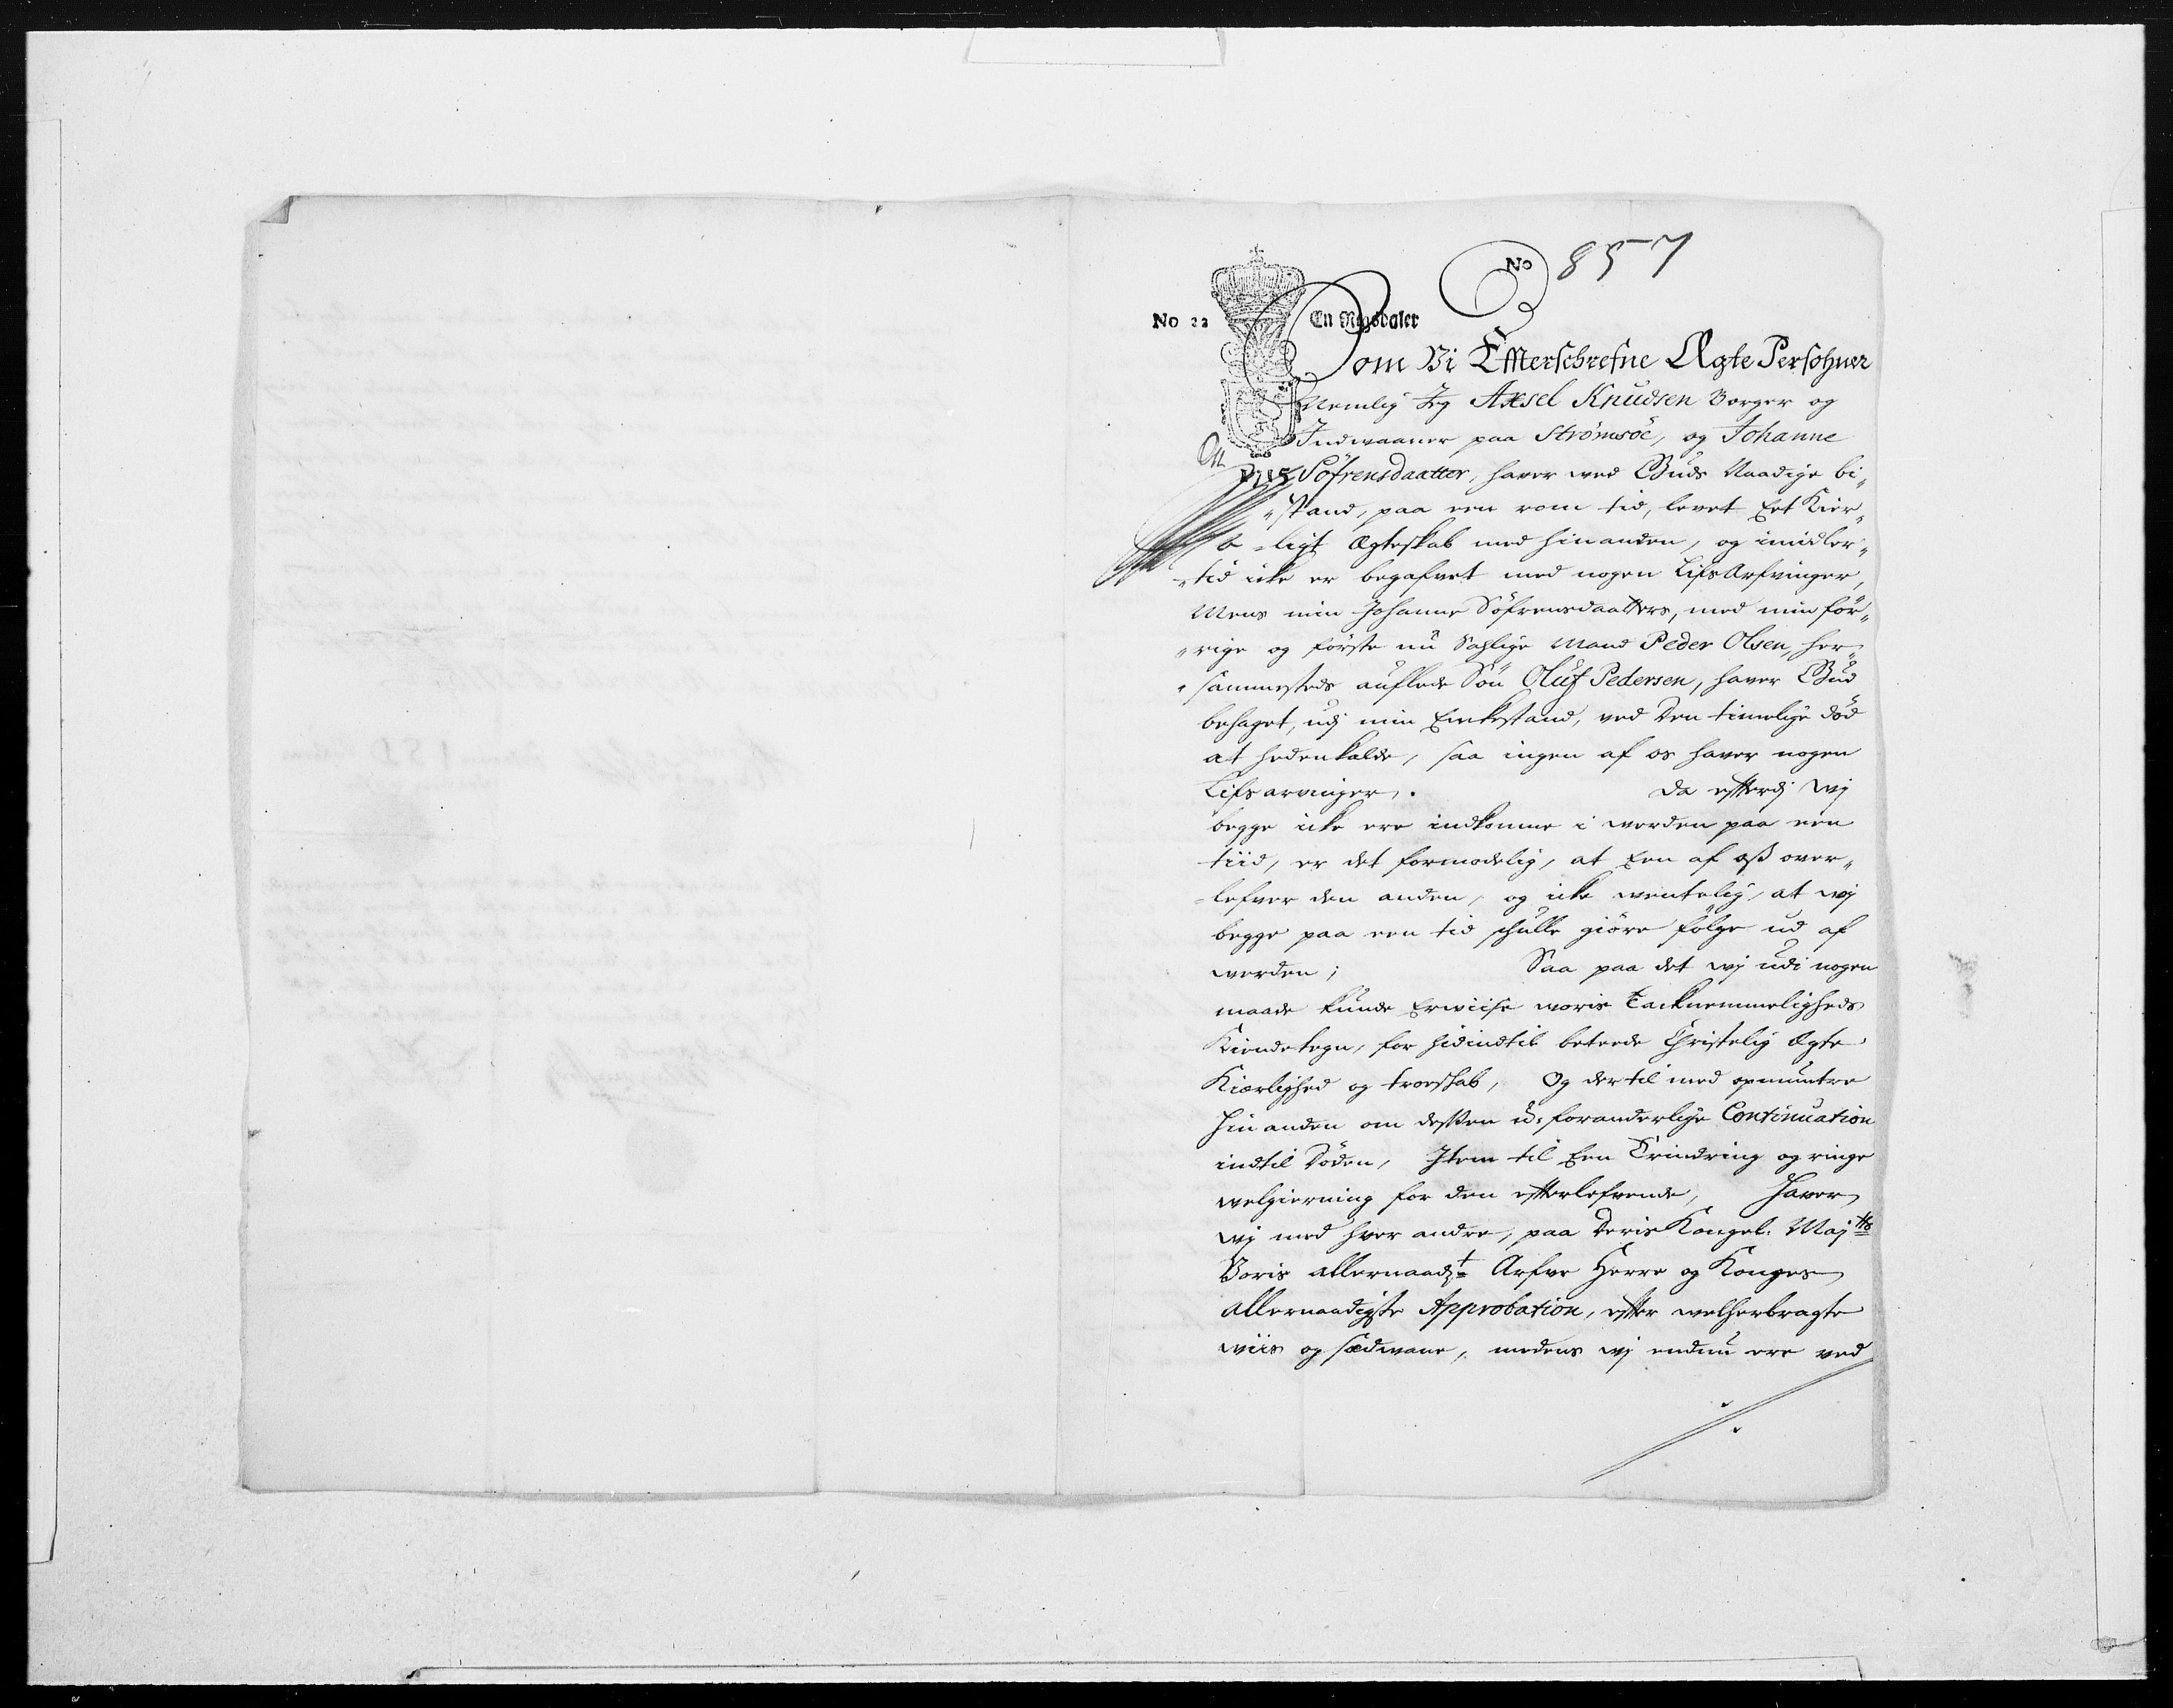 No 857
No 22 En Rigsdaler
Som Vi Effterschrefne Ægte Persohner
Nemlig Jeg Axsel Knudsen Borger og
Indwaaner paa Strømsöe, og Johanne
1715 Söfrensdaatter, haver med Guds Naadige bi„
„stand, paa een rom tid, levet Eet Kier„
„ligt Ægteskab med hinanden, og imidler„
„tid icke er begafvet med nogen LifsArfvinger,
Mens min Johanne Söfrensdaatters, med min för„
„rige og förste nu Sahlige Mand Peder Olsen, her„
„sammesteds auflede Sön Oluf Pedersen, haver Gud
behaget, udj min Enkestand, ved Den timelige död
at hedenkalde, saa ingen af os haver nogen
Lifsarvinger. Da efterdj wj
begge icke ere indkomne i werden paa een
tiid, er det formodelig, at Een af oss over„
„lefver den anden, og icke wentelig, at wj
begge paa een tid schulle giöre fölge ud af
werden; Saa paa det wj udi nogen
maade kunde Erwiise woris Tacknemmeligheds
Kiendetegn, for hidindtil beteede Christelig Ægte
Kiærlighed og troeskab, Og der til med opmuntre
hinanden om dessen u-foranderlige Continuation
indtil Döden, Item til Een Erindring og ringe
welgierning for den efterlefvende, Haver
wj med hver andre, paa Deris Kongel. Maj:tts
Voris allernaad:t Arfve Herre og Konges
allernaadigste Approbation, efter welherbragte
wiis og sædwane, medens wj endnu ere ved